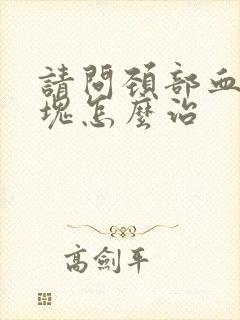 請問頚部血
塊怎麼治
高劍平